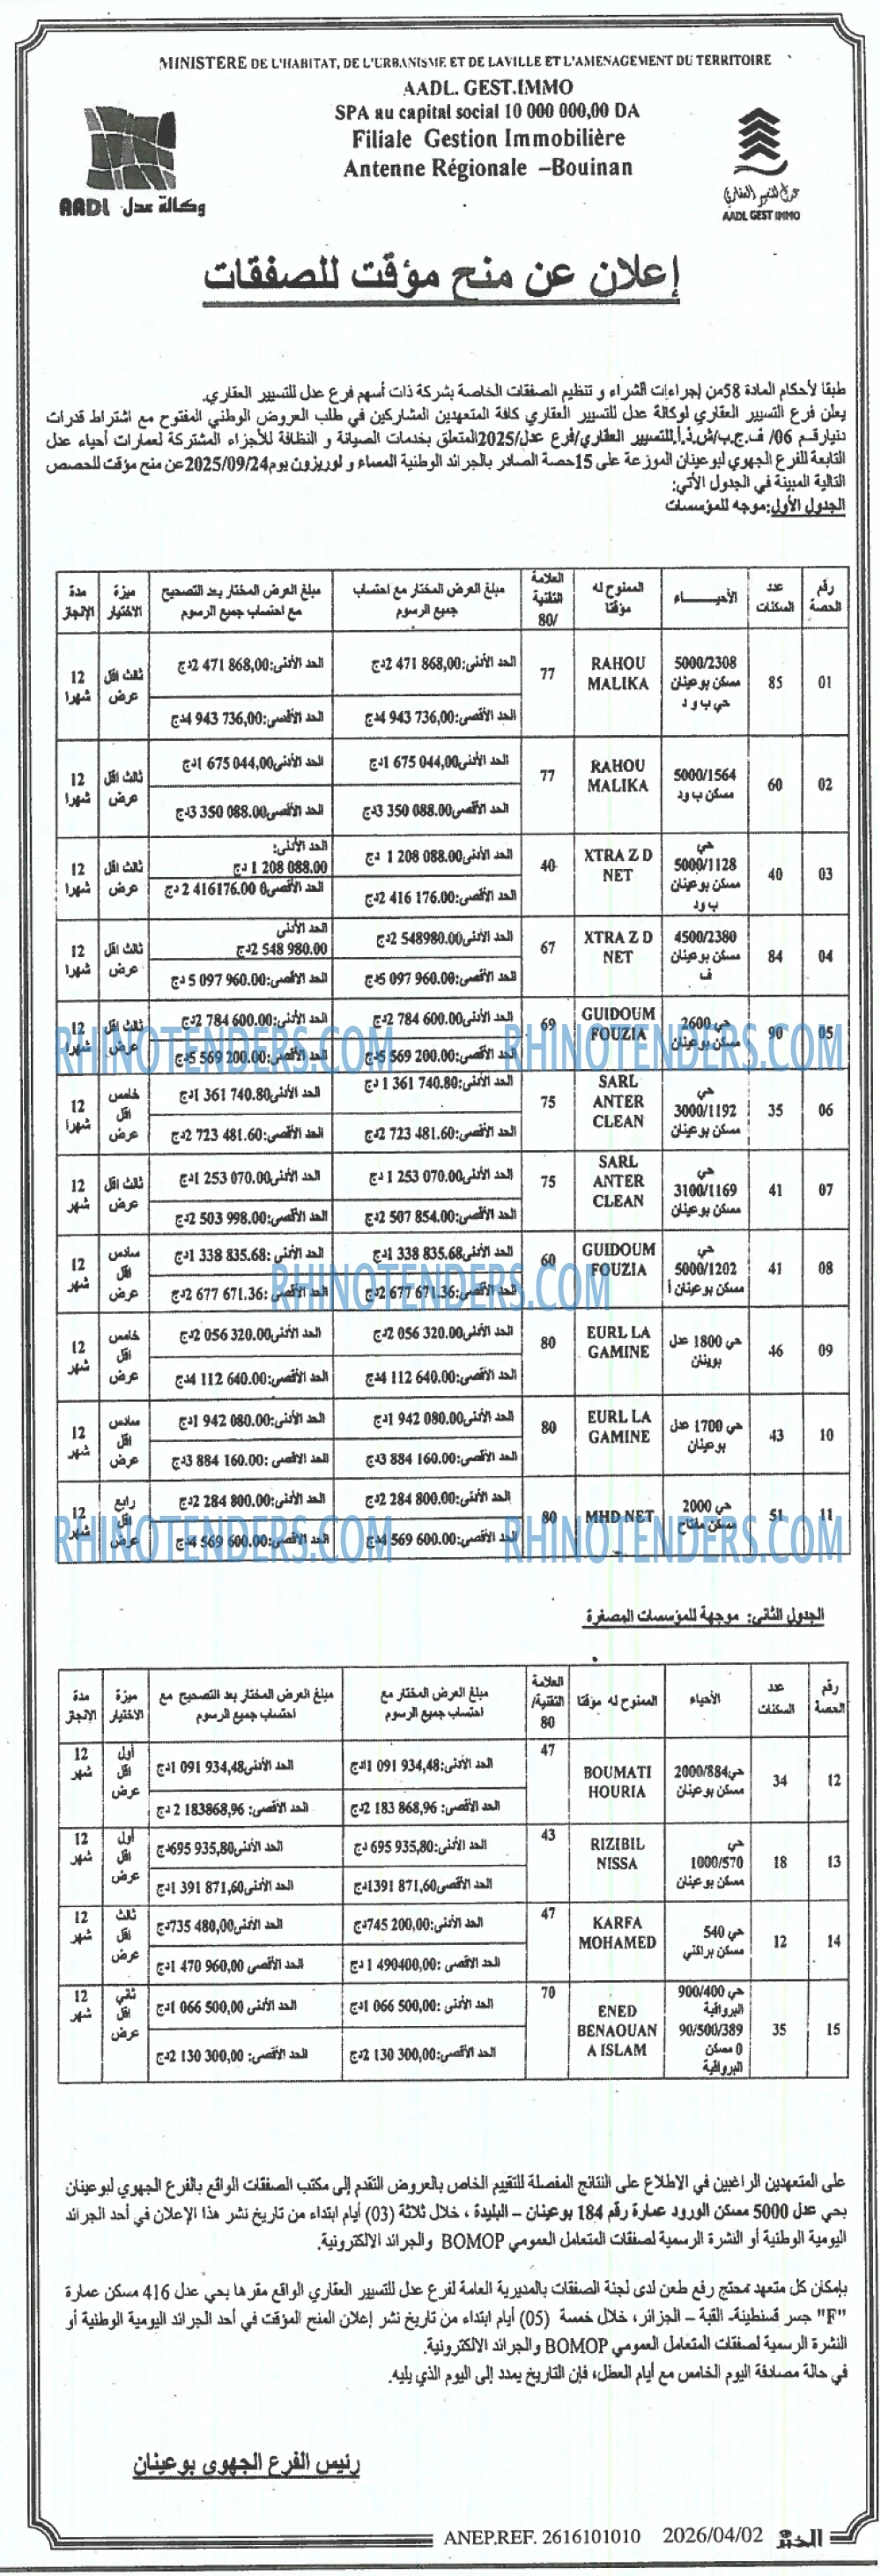 MINISTERE DE L'HABITAT, DE L'URBANISME ET DE LAVILLE ET L'AMENAGEMENT DU TERRITOIRE
AADL. GEST.IMMO
SPA au capital social 10 000 000,00 DA
Filiale Gestion Immobilière
Antenne Régionale –Bouinan
AADL وكالة عدل
عدل للتسيير العقاري
AADL GEST IMMO
إعلان عن منح مؤقت للصفقات
طبقا لأحكام المادة 58من إجراءات الشراء و تنظيم الصفقات الخاصة بشركة ذات أسهم فرع عدل للتسيير العقاري.
يعلن فرع التسيير العقاري لوكالة عدل للتسيير العقاري كافة المتعهدين المشاركين في طلب العروض الوطني المفتوح مع اشتراط قدرات
دنيارقم 06/ ف.ج.ب/ش.ذ.أ.للتسيير العقاري/فرع عدل/2025المتعلق بخدمات الصيانة و النظافة للأجزاء المشتركة لعمارات أحياء عدل
التابعة للفرع الجهوي لبوعينان الموزعة على 15حصة الصادر بالجرائد الوطنية المساء و لوريزون يوم2025/09/24عن منح مؤقت للحصص
التالية المبينة في الجدول الأتي:
الجدول الأول:موجه للمؤسسات
رقم الحصة | عدد السكنات | الأحيـــــاء | الممنوح له مؤقتا | العلامة التقنية /80 | مبلغ العرض المختار مع احتساب جميع الرسوم | مبلغ العرض المختار بعد التصحيح مع احتساب جميع الرسوم | ميزة الاختيار | مدة الإنجاز
01 | 85 | 5000/2308 مسكن بوعينان حي ب و د | RAHOU MALIKA | 77 | الحد الأدنى:2 471 868,00دج الحد الأقصى:4 943 736,00دج | الحد الأدنى:2 471 868,00دج الحد الأقصى:4 943 736,00دج | ثالث اقل عرض | 12 شهرا
02 | 60 | 5000/1564 مسكن ب ود | RAHOU MALIKA | 77 | الحد الأدنى1 675 044,00دج الحد الأقصى:3 350 088.00دج | الحد الأدنى1 675 044,00دج الحد الأقصى3 350 088.00دج | ثالث اقل عرض | 12 شهرا
03 | 40 | حي 5000/1128 مسكن بوعينان ب ود | XTRA Z D NET | 40 | الحد الأدنى1 208 088.00 دج الحد الأقصى:2 416 176.00دج | الحد الأدنى: 1 208 088.00 دج الحد الأقصى2 416176.00 0 دج | ثالث اقل عرض | 12 شهرا
04 | 84 | 4500/2380 مسكن بوعينان ف | XTRA Z D NET | 67 | الحد الأدنى2 548980.00دج الحد الأقصى:5 097 960.00دج | الحد الأدنى 2 548 980.00دج الحد الأقصى:5 097 960.00دج | ثالث اقل عرض | 12 شهرا
05 | 90 | حي 2600 مسكن بوعينان | GUIDOUM FOUZIA | 69 | الحد الأدنى:2 784 600.00دج الحد الأقصى:5 569 200.00دج | الحد الأدنى:2 784 600.00دج الحد الأقصى:5 569 200.00دج | ثالث اقل عرض | 12 شهرا
06 | 35 | حي 3000/1192 مسكن بوعينان | SARL ANTER CLEAN | 75 | الحد الأدنى:1 361 740.80 دج الحد الأقصى:2 723 481.60دج | الحد الأدنى1 361 740.80دج الحد الأقصى:2 723 481.60دج | خامس اقل عرض | 12 شهرا
07 | 41 | حي 3100/1169 مسكن بوعينان | SARL ANTER CLEAN | 75 | الحد الأدنى1 253 070.00دج الحد الأقصى:2 507 854.00دج | الحد الأدنى1 253 070.00دج الحد الأقصى:2 503 998.00دج | ثالث اقل عرض | 12 شهر
08 | 41 | حي 5000/1202 مسكن بوعينان أ | GUIDOUM FOUZIA | 60 | الحد الأدنى1 338 835.68دج الحد الأقصى:2 677 671.36دج | الحد الأدنى:1 338 835.68دج الحد الأقصى:2 677 671.36دج | سادس اقل عرض | 12 شهر
09 | 46 | حي 1800 عدل بوينان | EURL LA GAMINE | 80 | الحد الأدنى2 056 320.00دج الحد الأقصى:4 112 640.00دج | الحد الأدنى2 056 320.00دج الحد الأقصى:4 112 640.00دج | خامس اقل عرض | 12 شهر
10 | 43 | حي 1700 عدل بوعينان | EURL LA GAMINE | 80 | الحد الأدنى1 942 080.00دج الحد الأقصى:3 884 160.00دج | الحد الأدنى:1 942 080.00دج الحد الاقصى :3 884 160.00دج | سادس اقل عرض | 12 شهر
11 | 51 | حي 2000 مسكن مفتاح | MHD NET | 80 | الحد الأدنى:2 284 800.00دج الحد الأقصى:4 569 600.00دج | الحد الأدنى:2 284 800.00دج الحد الأقصى:4 569 600.00دج | رابع اقل عرض | 12 شهر
الجدول الثاني: موجهة للمؤسسات المصغرة
رقم الحصة | عدد السكنات | الأحياء | الممنوح له مؤقتا | العلامة التقنية/ 80 | مبلغ العرض المختار مع احتساب جميع الرسوم | مبلغ العرض المختار بعد التصحيح مع احتساب جميع الرسوم | ميزة الاختيار | مدة الإنجاز
12 | 34 | حي2000/884 مسكن بوعينان | BOUMATI HOURIA | 47 | الحد الأدنى:1 091 934,48دج الحد الأقصى: 2 183 868,96دج | الحد الأدنى1 091 934,48دج الحد الأقصى: 2 183868,96 دج | أول اقل عرض | 12 شهر
13 | 18 | حي 1000/570 مسكن بوعينان | RIZIBIL NISSA | 43 | الحد الأدنى:695 935,80 دج الحد الأقصى1391 871,60دج | الحد الأدنى695 935,80دج الحد الأدنى1 391 871,60دج | أول اقل عرض | 12 شهر
14 | 12 | حي 540 مسكن براكني | KARFA MOHAMED | 47 | الحد الأدنى:745 200,00دج الحد الأقصى :1 490400,00 دج | الحد الأدنى735 480,00دج الحد الأقصى 1 470 960,00دج | ثالث اقل عرض | 12 شهر
15 | 35 | حي 900/400 البرواقية 90/500/389 0 مسكن البرواقية | ENED BENAOUAN A ISLAM | 70 | الحد الأدنى:1 066 500,00دج الحد الأقصى:2 130 300,00دج | الحد الأدنى 1 066 500,00دج الحد الأقصى: 2 130 300,00دج | ثاني اقل عرض | 12 شهر
على المتعهدين الراغبين في الاطلاع على النتائج المفصلة للتقييم الخاص بالعروض التقدم إلى مكتب الصفقات الواقع بالفرع الجهوي لبوعينان
بحي عدل 5000 مسكن الورود عمارة رقم 184 بوعينان – البليدة ، خلال ثلاثة (03) أيام ابتداء من تاريخ نشر هذا الإعلان في أحد الجرائد
اليومية الوطنية أو النشرة الرسمية لصفقات المتعامل العمومي BOMOP والجرائد الالكترونية.
بإمكان كل متعهد محتج رفع طعن لدى لجنة الصفقات بالمديرية العامة لفرع عدل للتسيير العقاري الواقع مقرها بحي عدل 416 مسكن عمارة
"F" جسر قسنطينة- القبة – الجزائر، خلال خمسة (05) أيام ابتداء من تاريخ نشر إعلان المنح المؤقت في أحد الجرائد اليومية الوطنية أو
النشرة الرسمية لصفقات المتعامل العمومي BOMOP والجرائد الالكترونية.
في حالة مصادفة اليوم الخامس مع أيام العطل، فإن التاريخ يمدد إلى اليوم الذي يليه.
رئيس الفرع الجهوي بوعينان
ANEP.REF. 2616101010 2026/04/02 الخبر
RHINOTENDERS.COM RHINOTENDERS.COM
RHINOTENDERS.COM
RHINOTENDERS.COM RHINOTENDERS.COM